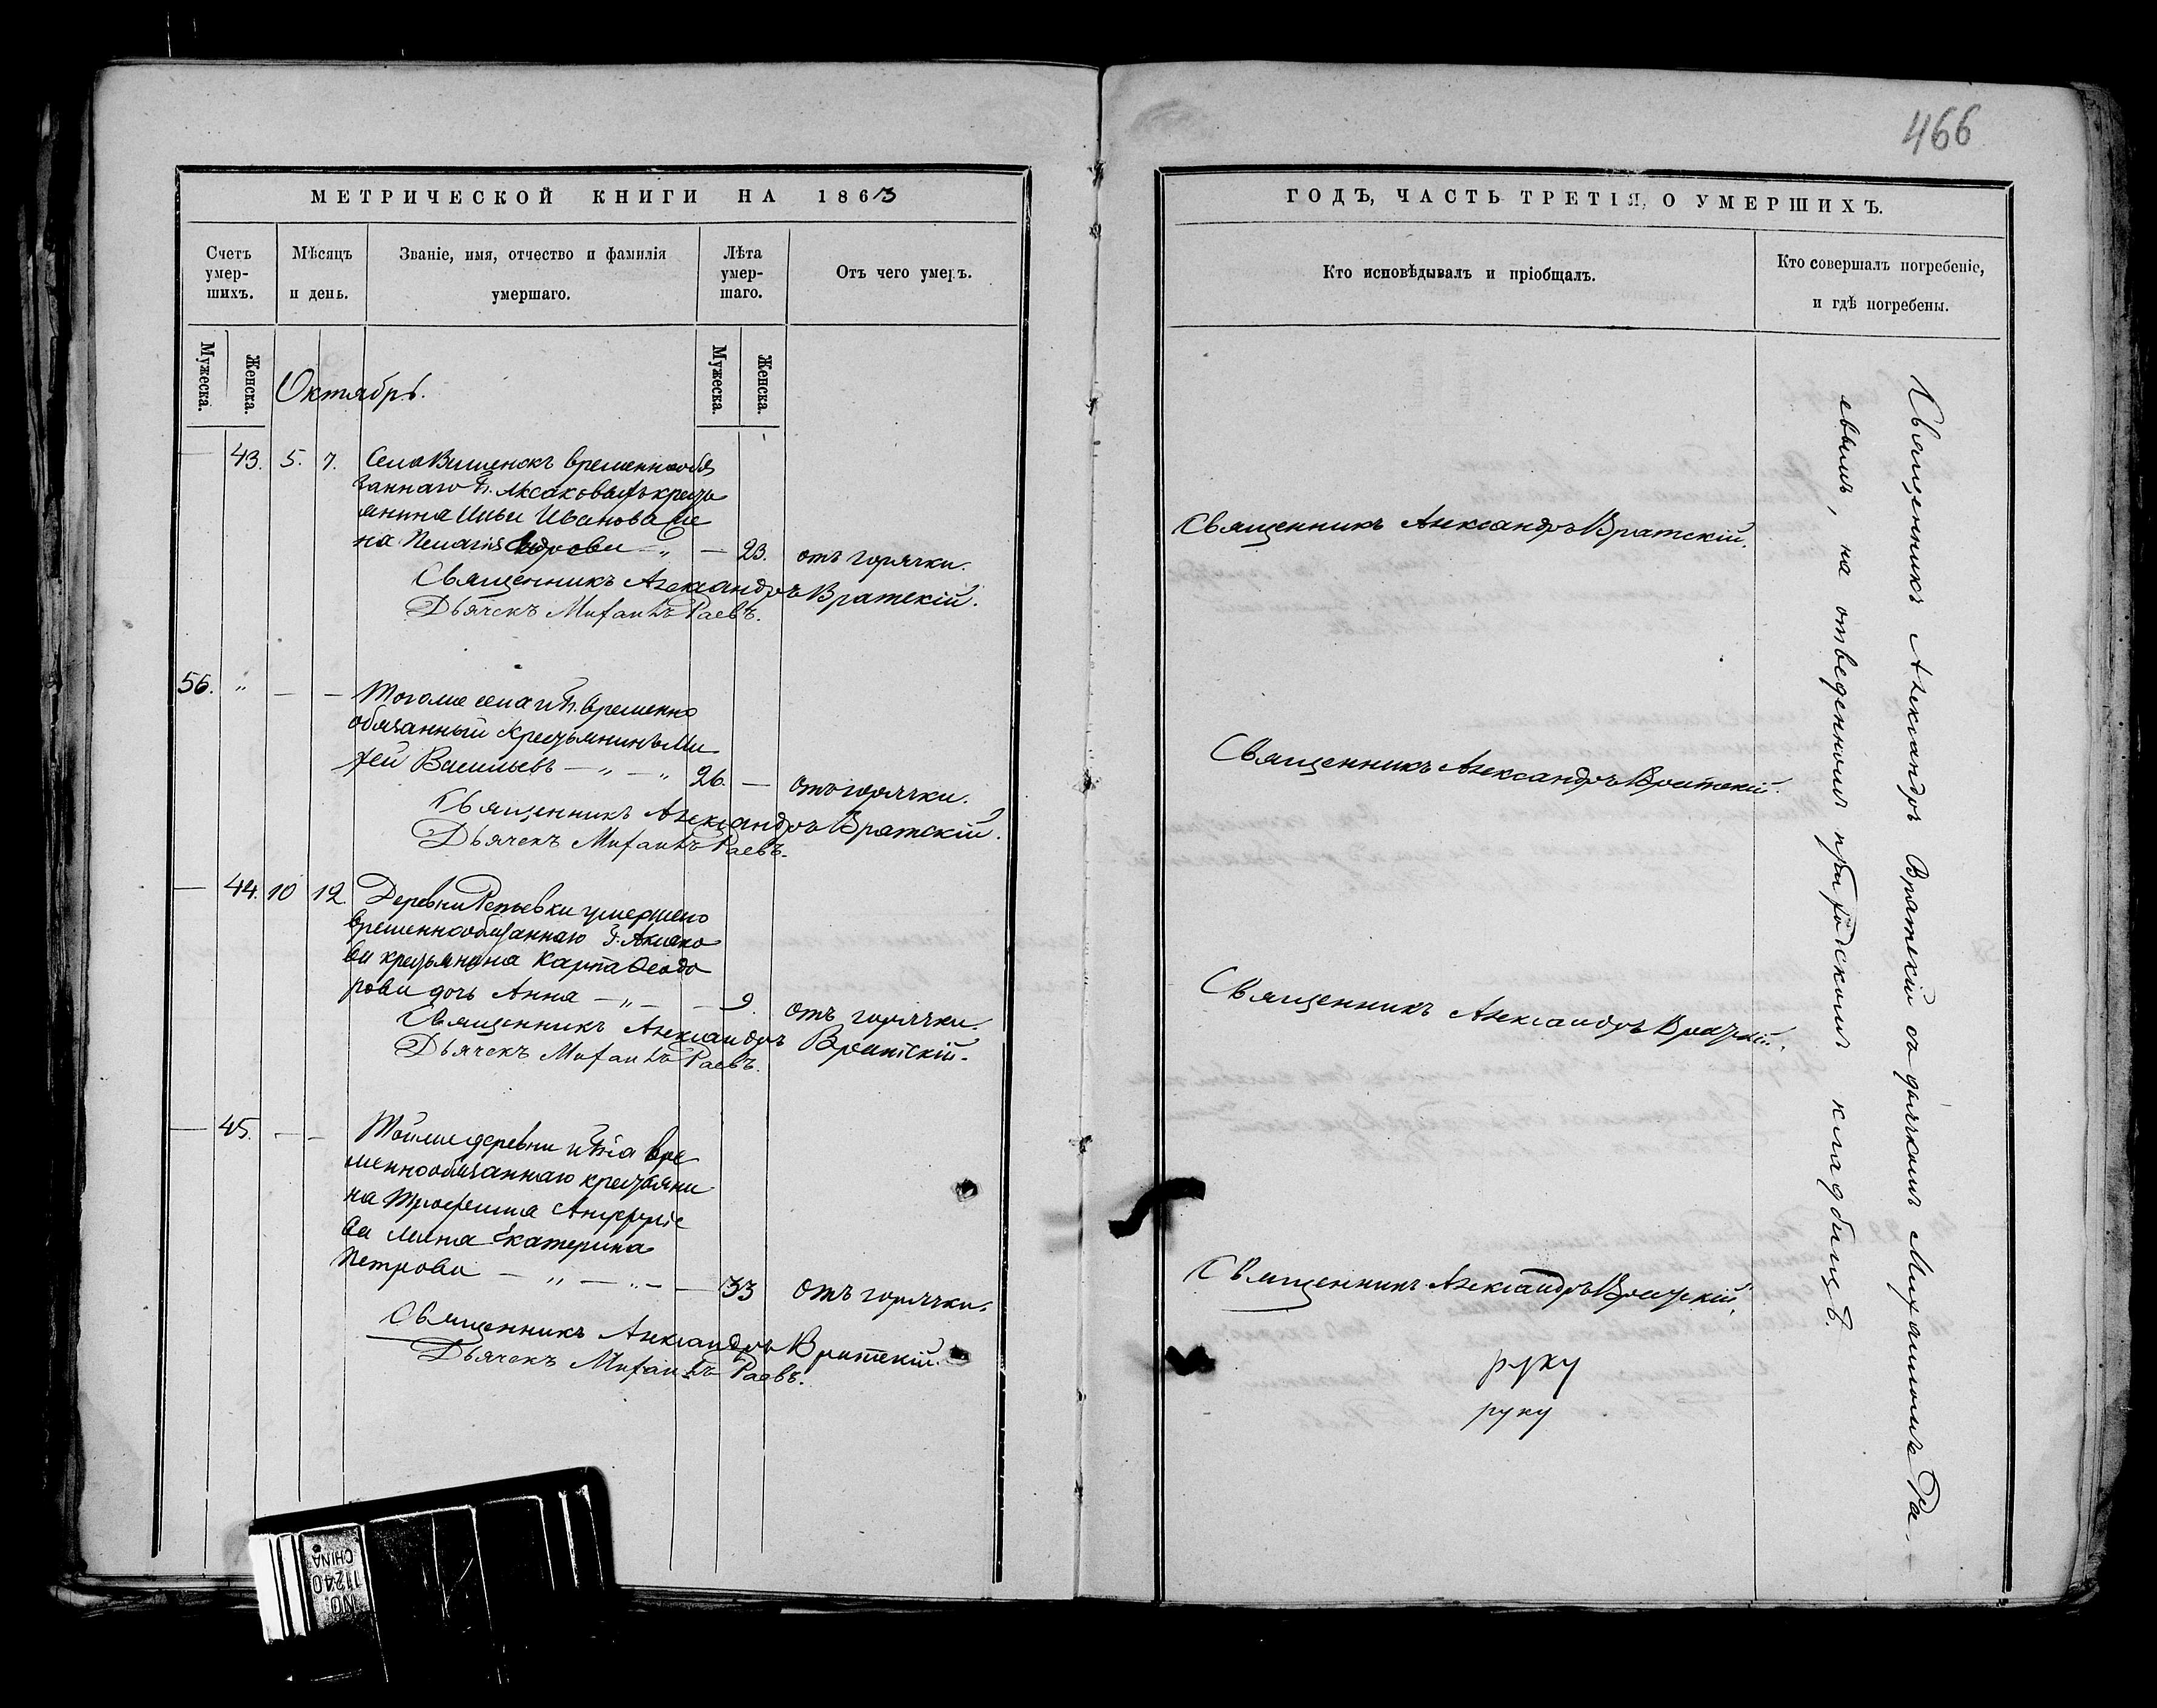 466
МЕТРИЧЕСКОЙ КНИГИ НА 1863
Счетъ умер-шихъ.
Мѣсяцъ и день.
Званіе, имя, отчество и фамилія умершаго.
Лѣта умер-шаго.
Отъ чего умеръ.
Мужеска.
Женска.
Мужеска.
Женска.
Октябрь.
— 43. 5. 7. Села Вишенокъ временнообя
заннаго Г. Аксакова крестья
янина Ильи Иванова же
на Пелагія — „ — 23. отъ горячки.
Священникъ Александръ Вратскій.
Дьячекъ Михаилъ Раевъ.
56. „ — — Тогоже села и Г. временно
обязанный крестьянинъ Ми
хей Васильевъ — „ — „ 26. — отъ горячки.
Священникъ Александръ Вратскій.
Дьячекъ Михаилъ Раевъ.
— 44. 10 12. Деревни Репьевки умершего
временнообязаннаго Г. Аксако
ва крестьянина Карпа Ѳеодо
рова дочь Анна — „ — — 9. отъ горячки.
Священникъ Александръ Вратскій.
Дьячекъ Михаилъ Раевъ.
— 45. — — Тойже деревни и Гна вре
меннообязаннаго крестьяни
на Трофима
ва жена Екатерина
Петрова — „ — „ — — 33 отъ горячки.
Священникъ Александръ Вратскій.
Дьячекъ Михаилъ Раевъ.
NO. 11240
CHINA
ГОДЪ, ЧАСТЬ ТРЕТІЯ, О УМЕРШИХЪ.
Кто исповѣдывалъ и пріобщалъ.
Кто совершалъ погребеніе,
и гдѣ погребены.
Священникъ Александръ Вратскій.
Священникъ Александръ Вратскій.
Священникъ Александръ Вратскій.
Священникъ Александръ Вратскій.
руку
руку
Священникъ Александръ Вратскій съ дьячкомъ Михаиломъ Ра-
евымъ, на отведенномъ приходскомъ кладбищѣ.